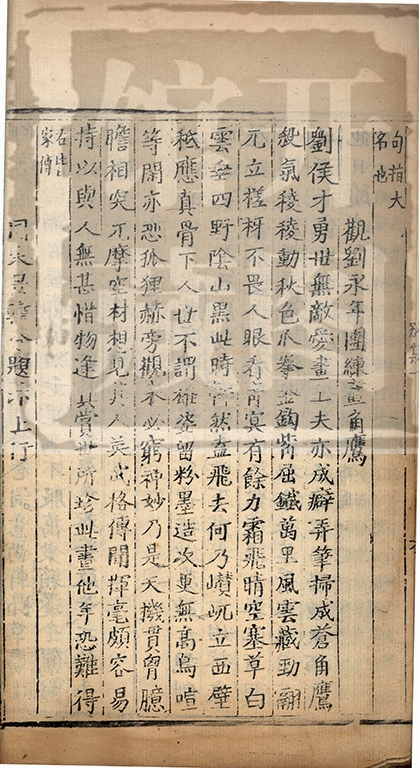 句指大
名也
觀劉永年團練畫角鷹
劉侯才勇世無敵愛畫工夫亦成癖弄筆掃成蒼角鷹
殺氣稜稜動秋色爪拳金鉤觜屈鐵萬里風雲藏勁翮
兀立槎枒不畏人眼看青冥有餘力霜飛晴空塞草白
雲垂四野陰山黑此時軒然盍飛去何乃巑岏立西壁
秪應真骨下人世不謂雄姿留粉墨造次更無高鳥喧
等閑亦恐狐狸嚇旁觀未必窮神妙乃是天機貫胷臆
瞻相突兀摩空材想見其人英武格傳聞揮毫頗容易
持以與人無甚惜物逢真賞世所珍此畫他年恐難得
右出
家傳